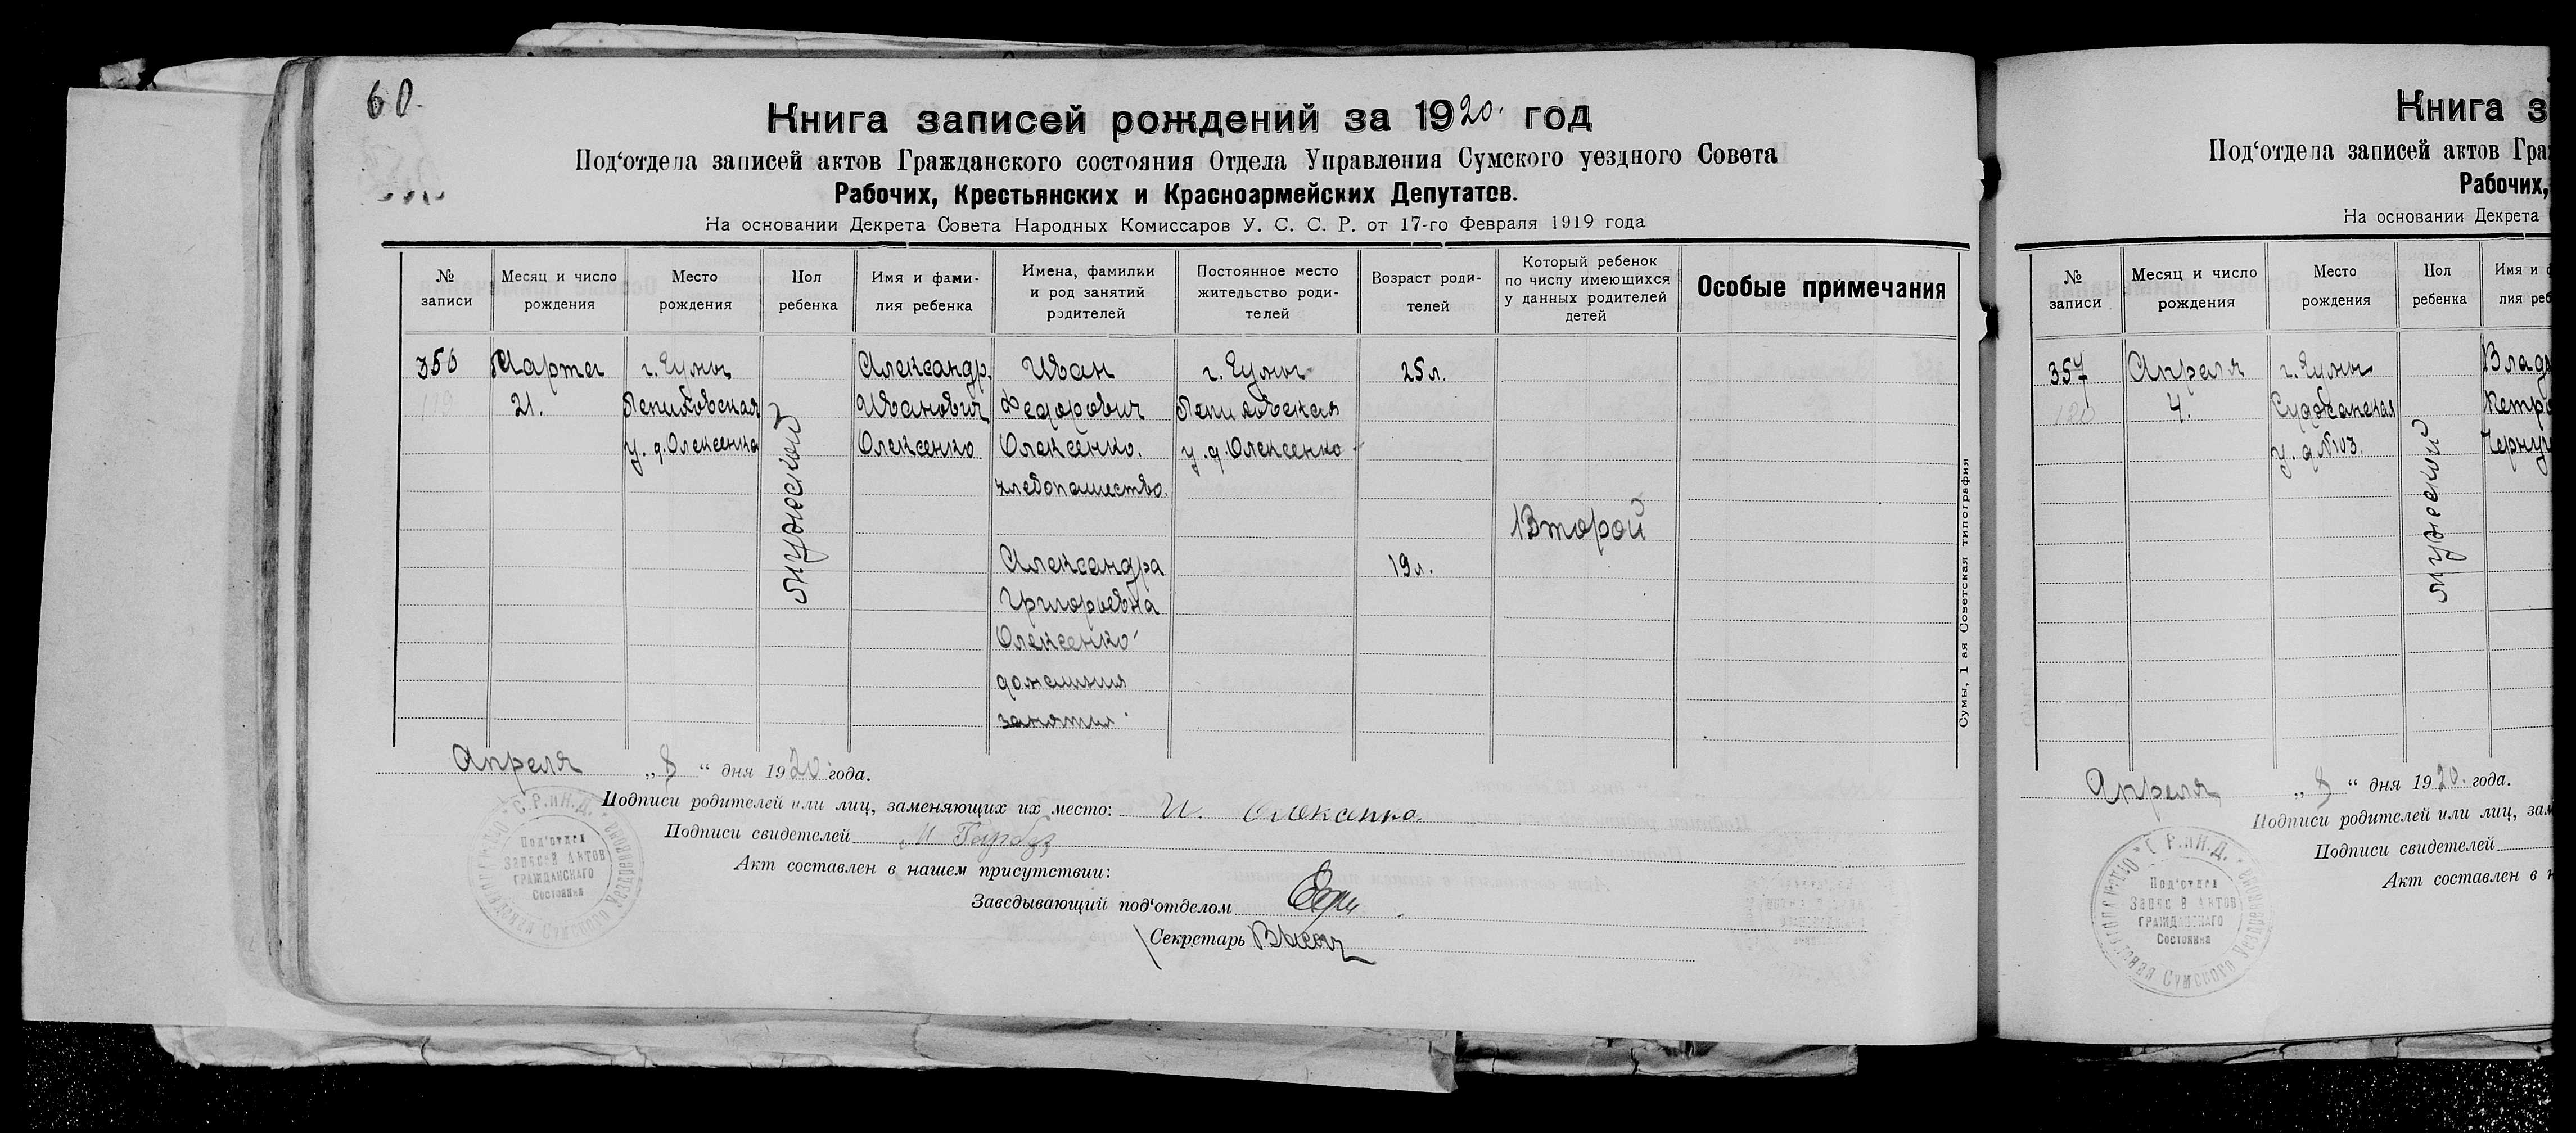 60.
Книга записей рождений за 1920. год
Под‘отдела записей актов Гражданского состояния Отдела Управления Сумского уездного Совета
Рабочих, Крестьянских и Красноармейских Депутатов.
На основании Декрета Совета Народных Комиссаров У. С. С. Р. от 17-го Февраля 1919 года
№ записи
Месяц и число рождения
Место рождения
Пол ребенка
Имя и фами-
лия ребенка
Имена, фамилки
и род занятий
родителей
Постоянное место
жительство роди-
телей
Возраст роди-
телей
Который ребенок
по числу имеющихся
у данных родителей
детей
Особые примечания
356
Марта
21.
г. Сумы
Лепиховская
у. д. Олексенка
мужеский
Александр.
Иванович
Олексенко
Иван
Федорович
Олексенко.
хлебопашество.
Александра
Григорьевна
Олексенко
домашния
занятия
г. Сумы
Лепиховская
у. д. Олексенко
25 л.
19 л.
Второй
Сумы, 1 ая Советская типография
Апреля „ 8 “ дня 1920 года.
Подписи родителей или лиц, заменяющих их место: И.
Подписи свидетелей
Акт составлен в нашем присутствии:
Заведывающий под‘отделом
Секретарь
С. Р. и К. Д.
Под‘отдел
Записей Актов
ГРАЖДАНСКАГО
Состояния
Книга з
Под‘отдела записей актов Гра
Рабочих,
На основании Декрета
№ записи
Месяц и число рождения
Место рождения
Пол ребенка
Имя и ф
лия реб
357
120
Апреля
4.
г. Сумы
Суджанская
у. д №103.
мужеский
Влад
Петро
Черну
Апреля „ 8 “ дня 1920. года.
Подписи родителей или лиц, зам
Подписи свидетелей
Акт составлен в н
С. Р. и К. Д.
Под‘отдел
Запис й Актов
ГРАЖДАНСКАГО
Состояния